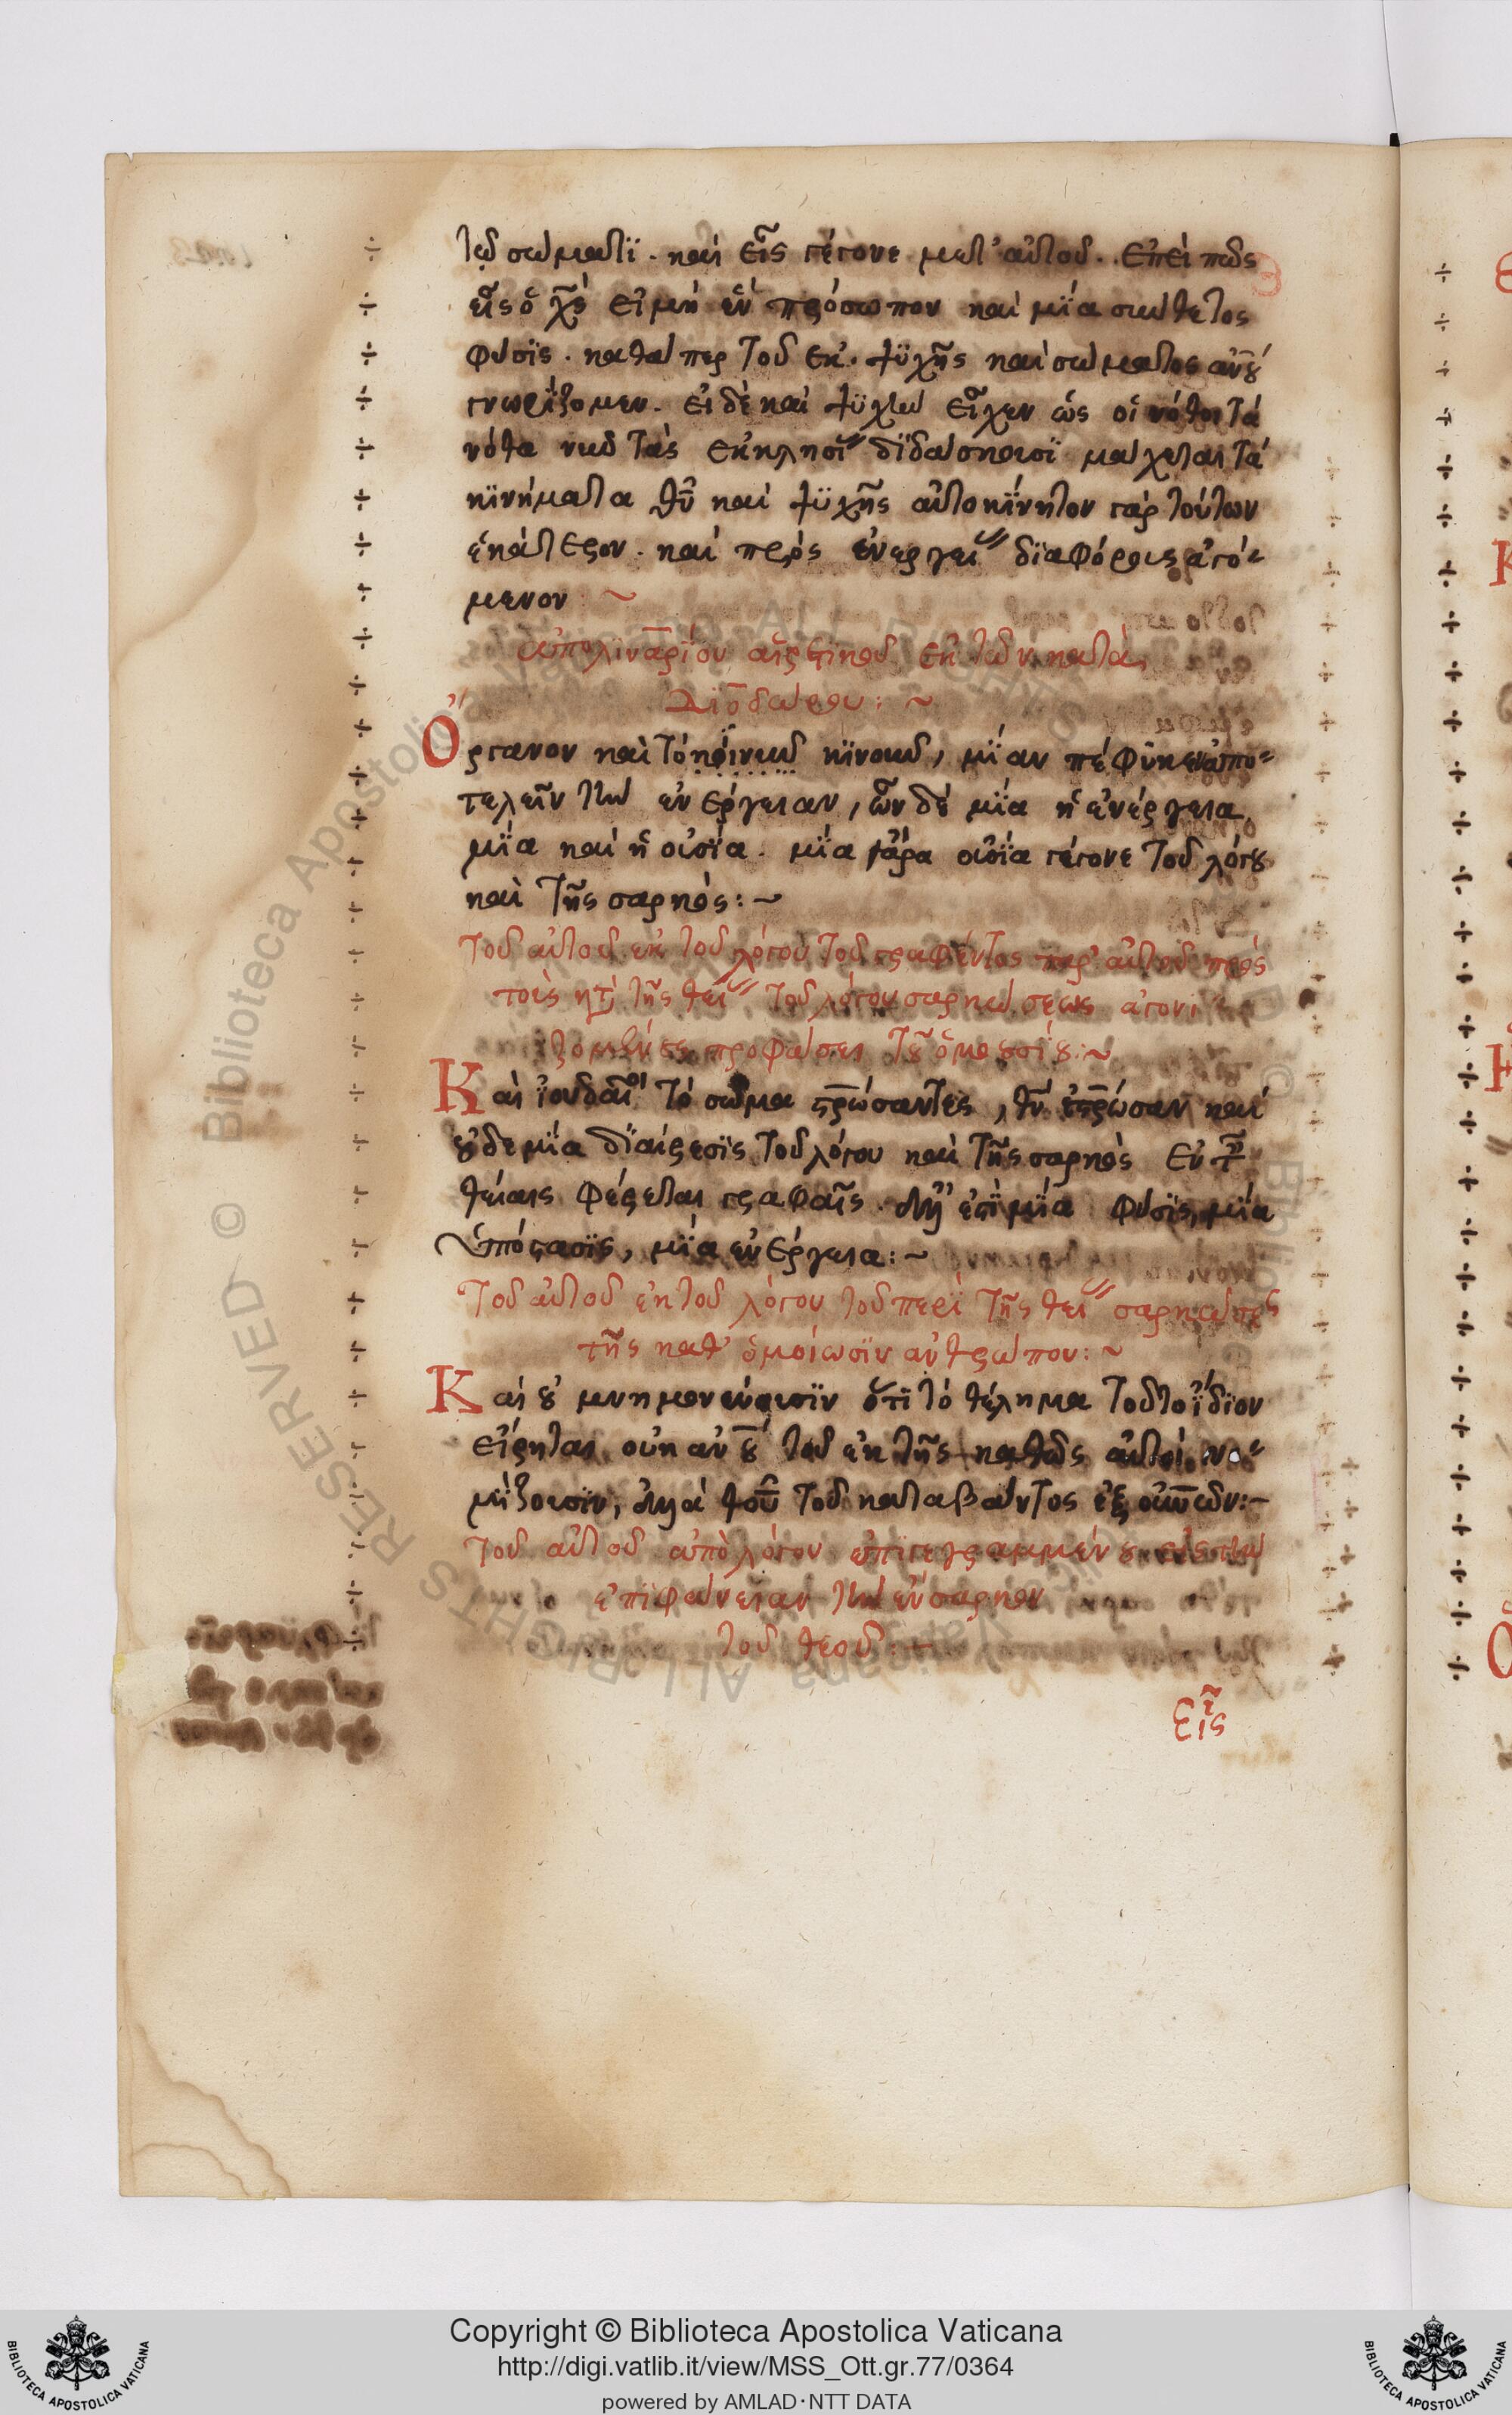 τῷ σώματϊ. καὶ εἷς γέγονε μετ' αὐτοῦ. ἐπεὶ πῶς
εἷς ὁ χς εἰμὴ ἓν πρόσωπον καὶ μία σύνθετος
φύσϊς. καθάπερ τοῦ ἐκ ψϋχῆς καὶ σώματος ανου
γνωρΐζομεν. εἰ δὲ καὶ ψϋχὴν εἶχεν ὡς οἱ νόθοι τὰ
νόθα νῦν τὰς ἐκκλησί δϊδάσκουσϊ μάχεται τὰ
κϊνήματα θυ καὶ ψϋχῆς αὐτοκΐνητον γὰρ τούτων
ἑκάτερον. καὶ πρὸς ἐνεργεί δϊαφόρους ἀγό-
μενον ~
ἀπολιναρΐου αἱρετικοῦ ἐκ τῶν κατὰ
Διοδώρου: ~
Ὄργανον καὶ τὸ κινοῦν κϊνοῦν, μΐαν πέφυκεν ἀπο-
τελεῖν τὴν ἐνέργειαν, ὧν δὲ μΐα ἡ ἐνέργεια
μΐα καὶ ἡ οὐσΐα. μΐα ἄρα οὐσΐα γέγονε τοῦ λόγου
καὶ τῆς σαρκός: ~
τοῦ αὐτοῦ ἐκ τοῦ λόγου τοῦ γραφέντος παρ' αὐτοῦ πρὸς
τοὺς κτ τῆς θεί τοῦ λόγου σαρκώσεως ἀγονι
ζομένους προφάσει τοῦ ὁμοουσίου: ~
Καὶ ἰουδαῖοι τὸ σῶμα στρώσαντες, θν ἐστρώσαν καὶ
οὐδεμΐα δϊαίρεσϊς τοῦ λόγου καὶ τῆς σαρκὸς ἐν τ
θείαις φέρεται γραφαῖς. ἀλλ' ἐστὶ μΐα φύσϊς, μΐα
ὑπόστασϊς, μΐα ἐνέργεια: ~
τοῦ αὐτοῦ ἐκ τοῦ λόγου τοῦ περὶ τῆς θεί σαρκώσεως
τῆς καθ' ὁμοίωσϊν ἀνθρώπου: ~
Καὶ οὐ μνημονεύουσϊν ὅτι τὸ θέλημα τοῦτο ἴδϊον
εἴρηται, οὐκ ανου τοῦ ἐκ γῆς καθὼς αὐτοὶ νο-
μΐζουσϊν, ἀλλὰ θυ τοῦ καταβάντος ἐξ οὐνων: ~
τοῦ αὐτοῦ ἀπὸ λόγου ἐπιγεγραμμένου εἰς τὴν
ἐπιφάνειαν τὴν ἐν σαρκὶ
τοῦ θεοῦ: ~
Εἷς
Copyright © Biblioteca Apostolica Vaticana
http://digi.vatlib.it/view/MSS_Ott.gr.77/0364
powered by AMLAD·NTT DATA